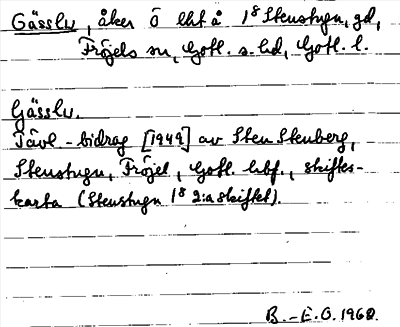 Gässlu, åker Ö lht å 1⁸ Stenstugu, gd,
Fröjels sn, Gotl. s. hd, Gotl. l.
Gässlu.
Tävl.-bidrag [1949] av Sten Stenberg,
Stenstugu, Fröjel, Gotl. hbf., skiftes-
karta (Stenstugu 1⁸ 2:a skiftet).
B.-E.O. 1968.